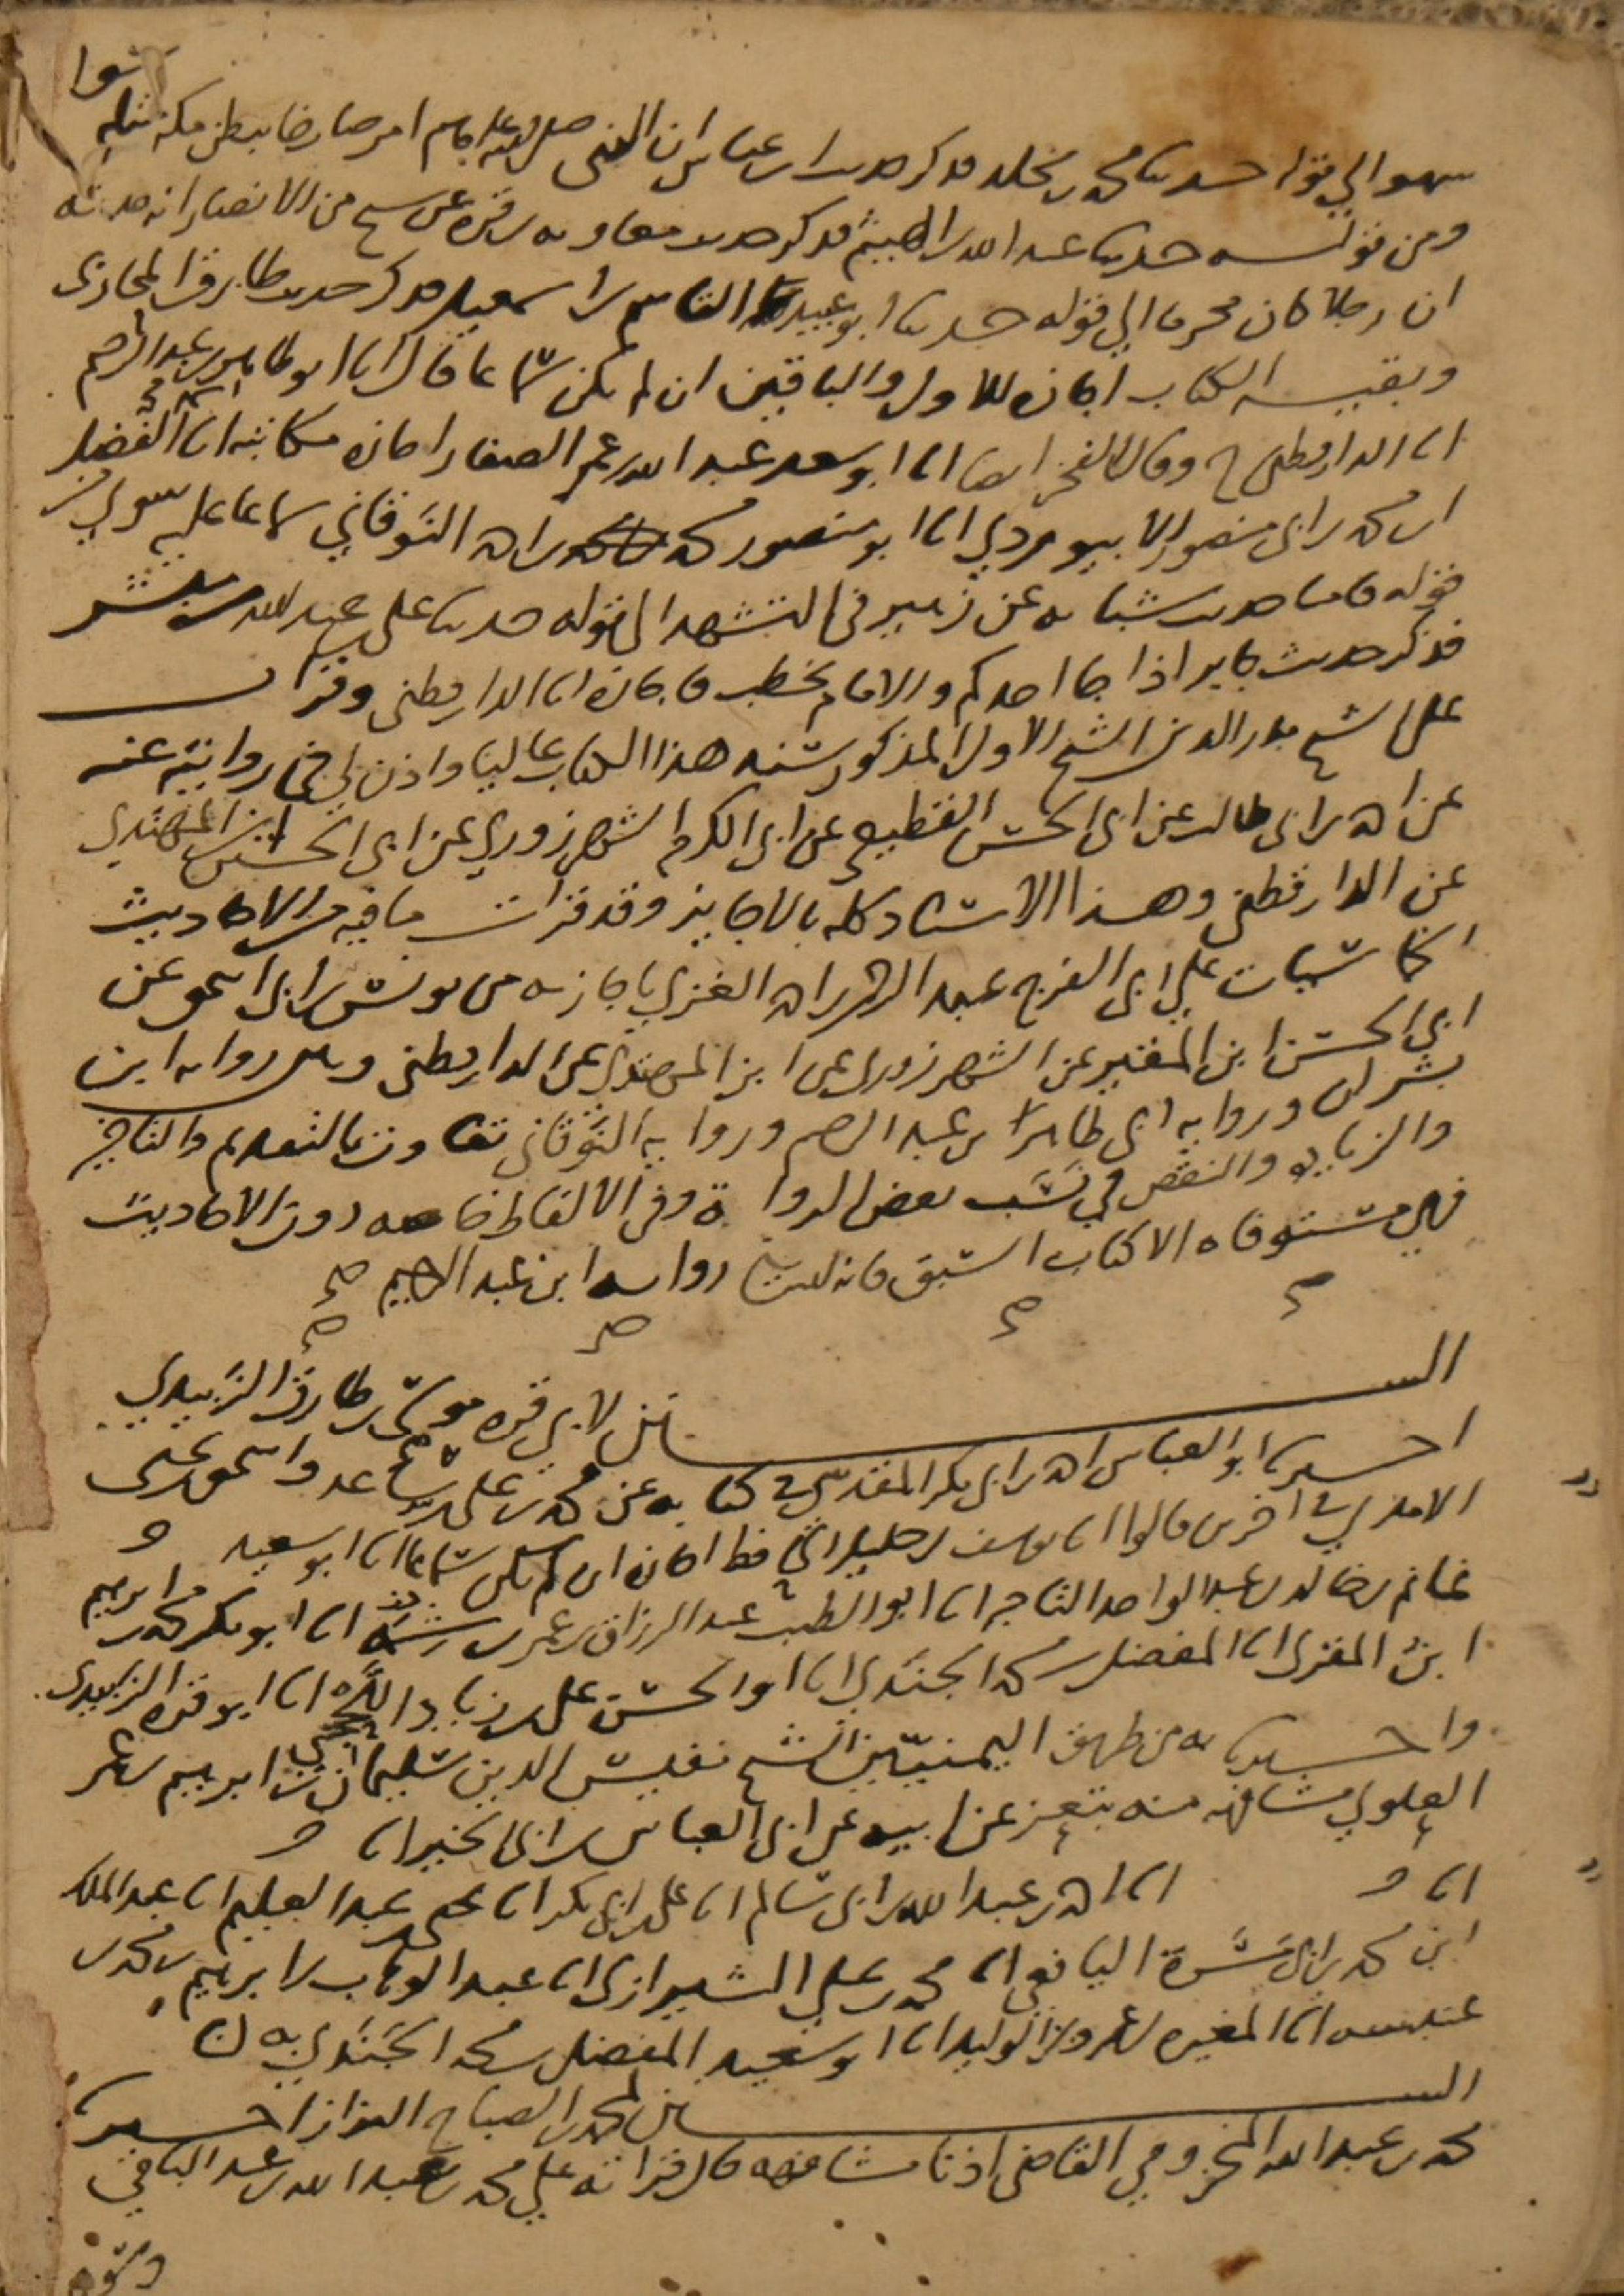 سهو الى قوله حدثنا محمد بن مخلد فذكر حديث ابن عباس ان النبي صلى الله عليه وسلم امر صارخا ببطن مكة
ومن قوله حدثنا عبد الله بن الهيثم فذكر حديث معاوية بن قرة عن شيخ من الانصار انه حدثه
ان رجلا كان محرما الى قوله حدثنا ابو عبيد القاسم بن اسمعيل فذكر حديث طارق المحاربي
وبقية الكتاب اجازة للاول والباقين ان لم يكن سماعا قال انا ابو طاهر بن عبد الرحيم
انا الدارقطني ح وقال الفخر ايضا انا ابو سعد عبد الله بن عمر الصفار اجازة مكاتبة انا الفضل
ابن محمد بن ابي منصور الابيوردي انا ابو منصور محمد بن احمد النوقاني سماعا عليه سوى من
قوله فاما حديث شبابة عن زهير في التشهد الى قوله حدثنا علي بن عبد الله بن مبشر
فذكر حديث جابر اذا جا احدكم والامام يخطب فاجازة انا الدارقطني وقرات
على الشيخ بدر الدين الشيخ الاول المذكور سنده هذا الكتاب عاليا واذن لي في روايته عنه
عن احمد بن ابي طالب عن ابي الحسن القطيعي عن ابي الكرم الشهرزوري عن ابي الحسين بن المهتدي
عن الدارقطني وهذا الاسناد كله بالاجايز وقد قرات ما فيه من الاحاديث
على ابي الفرج عبد الرحمن بن احمد الغزي باجازته من يونس بن ابي اسحق عن
ابي الحسن ابن المقير عن الشهرزوري عن ابن المهتدي عن الدارقطني وبين رواية ابن
بشران ورواية ابي طاهر بن عبد الرحيم ورواية النوقاني تفاوت بالتقديم والتاخير
والزيادة والنقص في نسب بعض الرواة وفي الالفاظ خاصة دون الاحاديث
فهي مستوفاه الا كتاب السبق فانه ليس رواية ابن عبد الرحيم
السنن لابي قرة موسى بن طارق الزبيدي
اخبرنا ابو العباس احمد بن ابي بكر المقدسي في كتابه عن محمد بن علي بن ساعد واسحق بن يحيى
الامدي في اخرين قالوا انا يوسف بن خليل الحافظ اجازة ان لم يكن سماعا انا ابو سعيد
غانم بن خالد بن عبد الواحد التاجر انا ابو الطيب عبد الرزاق بن عمر بن شمة انا ابو بكر محمد بن ابرهيم
ابن المقري انا المفضل بن محمد الجندي انا ابو الحسن علي بن زياد اللحجي انا ابو قرة الزبيدي
واخبرنا به من طريق اليمنيين الشيخ نفيس الدين سليمان بن ابرهيم بن عمر
العلوي مشافهة منه بتعز عن ابيه عن ابي العباس بن ابي الخير انا
انا انا احمد بن عبد الله بن ابي سالم انا علي بن ابي بكر انا عبد العليم انا عبد الملك
ابن محمد بن ابي ميسرة اليافعي انا محمد بن علي الشيرازي انا عبد الوهاب بن ابرهيم بن محمد بن
عنبسة انا المغيرة بن عمرو بن الوليد انا ابو سعيد المفضل بن محمد الجندي به
السنن لمحمد بن الصباح البزاز اخبرنا
محمد بن عبد الله المخزومي القاضي اذنا مشافهة قال قراته على محمد بن عبد الله بن عبد الباقي